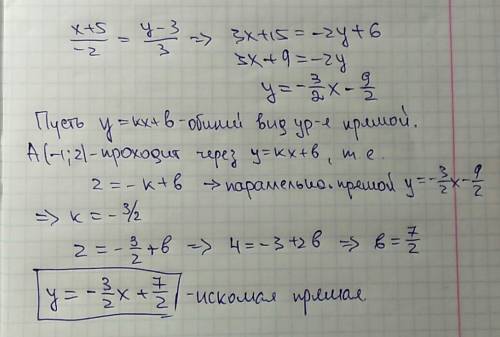 x+5/-2 = y-3/3 => 3x+15=-2y+6
3x+9=-2y
y=-3/2x-9/2
Пусть y=kx+b-общий вид ур-е прямой.
A(-1;2)-проходит через y=kx+b, т.е.
2=-k+b → парамельно. прямой y=-3/2x-9/2
=> k=-3/2
2=-3/2+b => 4=-3+2b => b=7/2
y=-3/2x+7/2 -искомая прямая